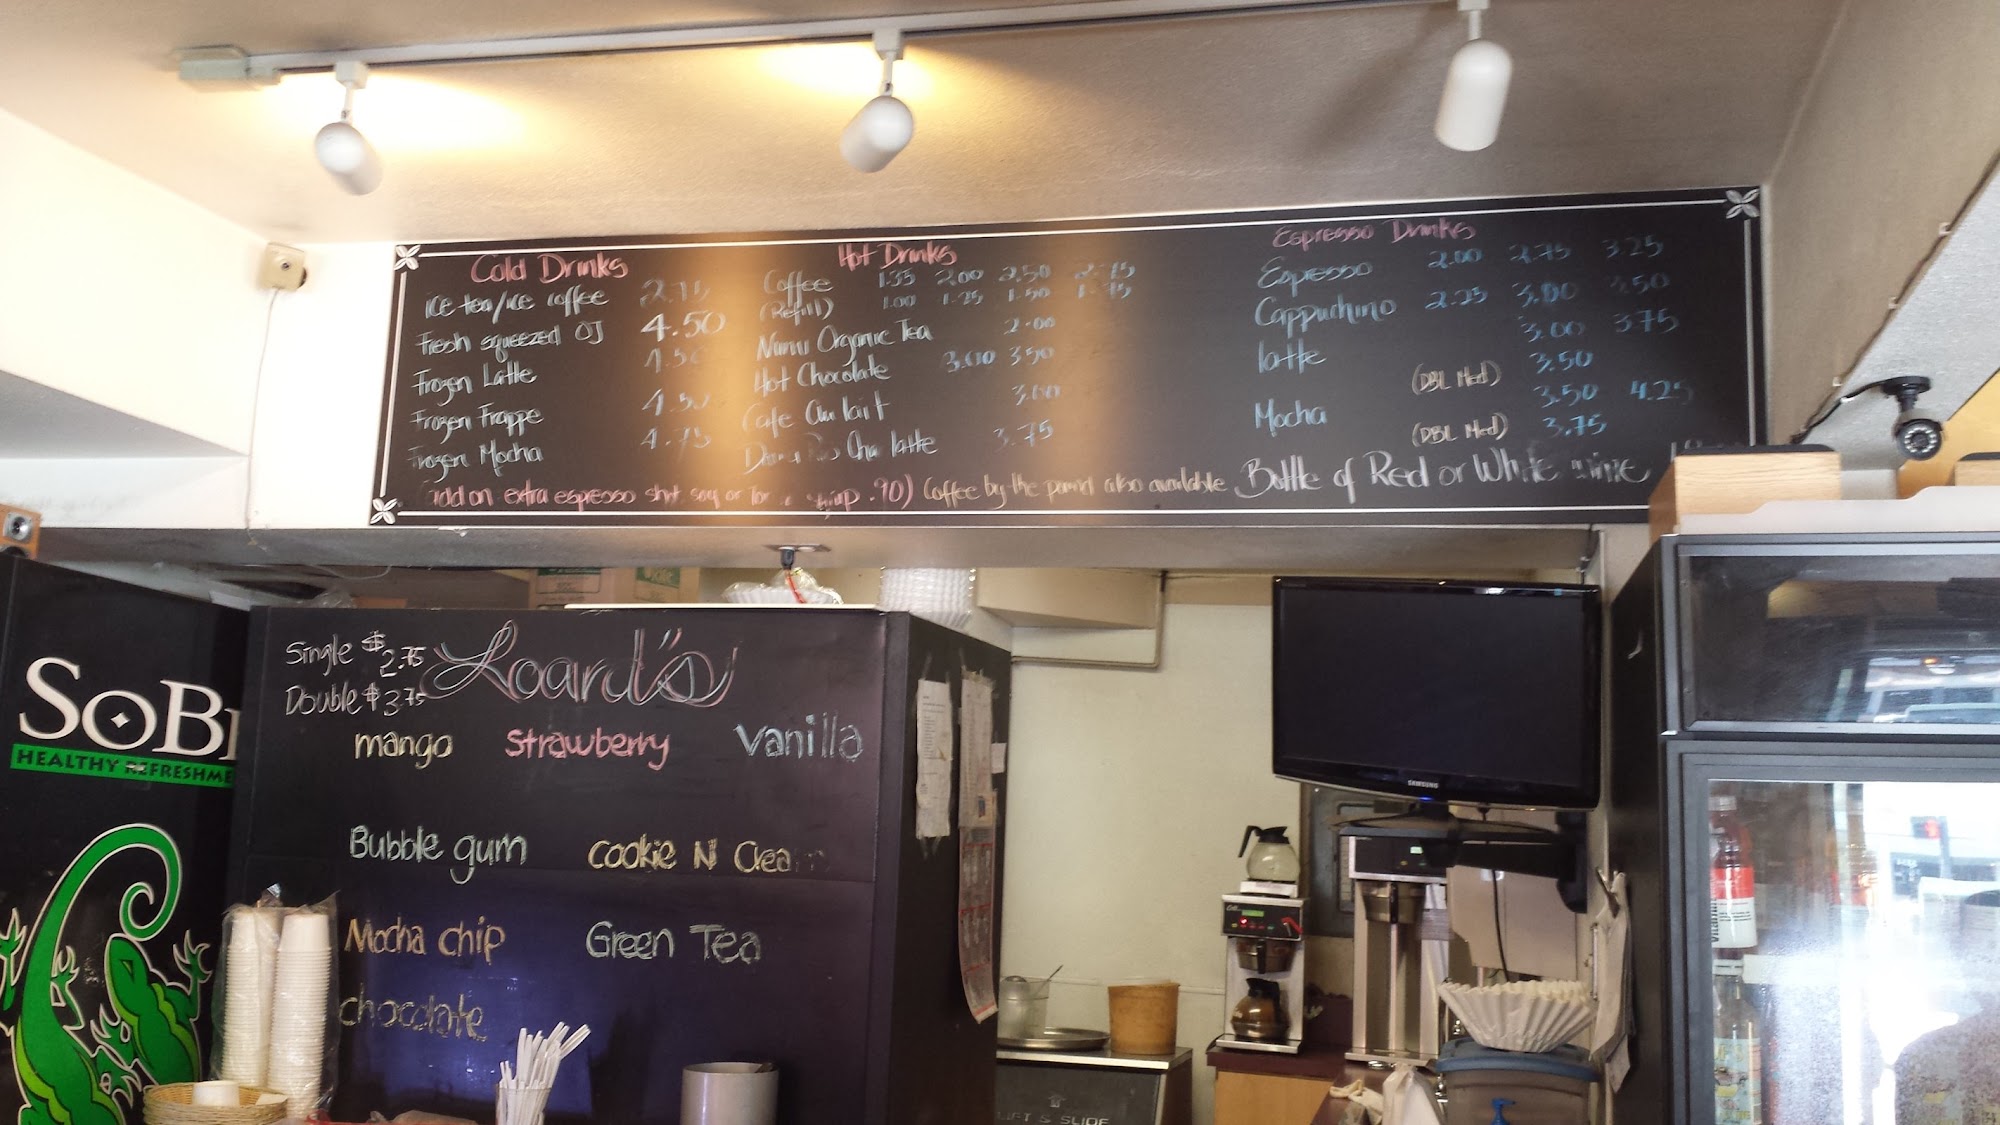 Cold Drinks
ice tea/ice coffee 2.75
Fresh squeezed OJ 4.50
Frozen Latte 4.50
Frozen Frappe 4.50
Frozen Mocha 4.75
Hot Drinks
Coffee 1.35 2.00 2.50 2.75
(Refill) 1.00 1.25 1.50 1.75
Numi Organic Tea 2.00
Hot Chocolate 3.00 3.50
Cafe Au lait 3.00
Chai latte 3.75
Espresso Drinks
Espresso 2.00 2.75 3.25
Cappuchino 2.25 3.00 3.50
latte 3.00 3.75
(DBL Med) 3.50
Mocha 3.50 4.25
(DBL Med) 3.75
add on extra espresso shot soy or .90) Coffee by the pound also available Bottle of Red or White wine
Single $2.75
Double $3.75
Loard's
mango strawberry vanilla
Bubble gum cookie N Cream
Mocha chip Green Tea
chocolate
SoBe
HEALTHY REFRESHME
SAMSUNG
LIFT & SLIDE